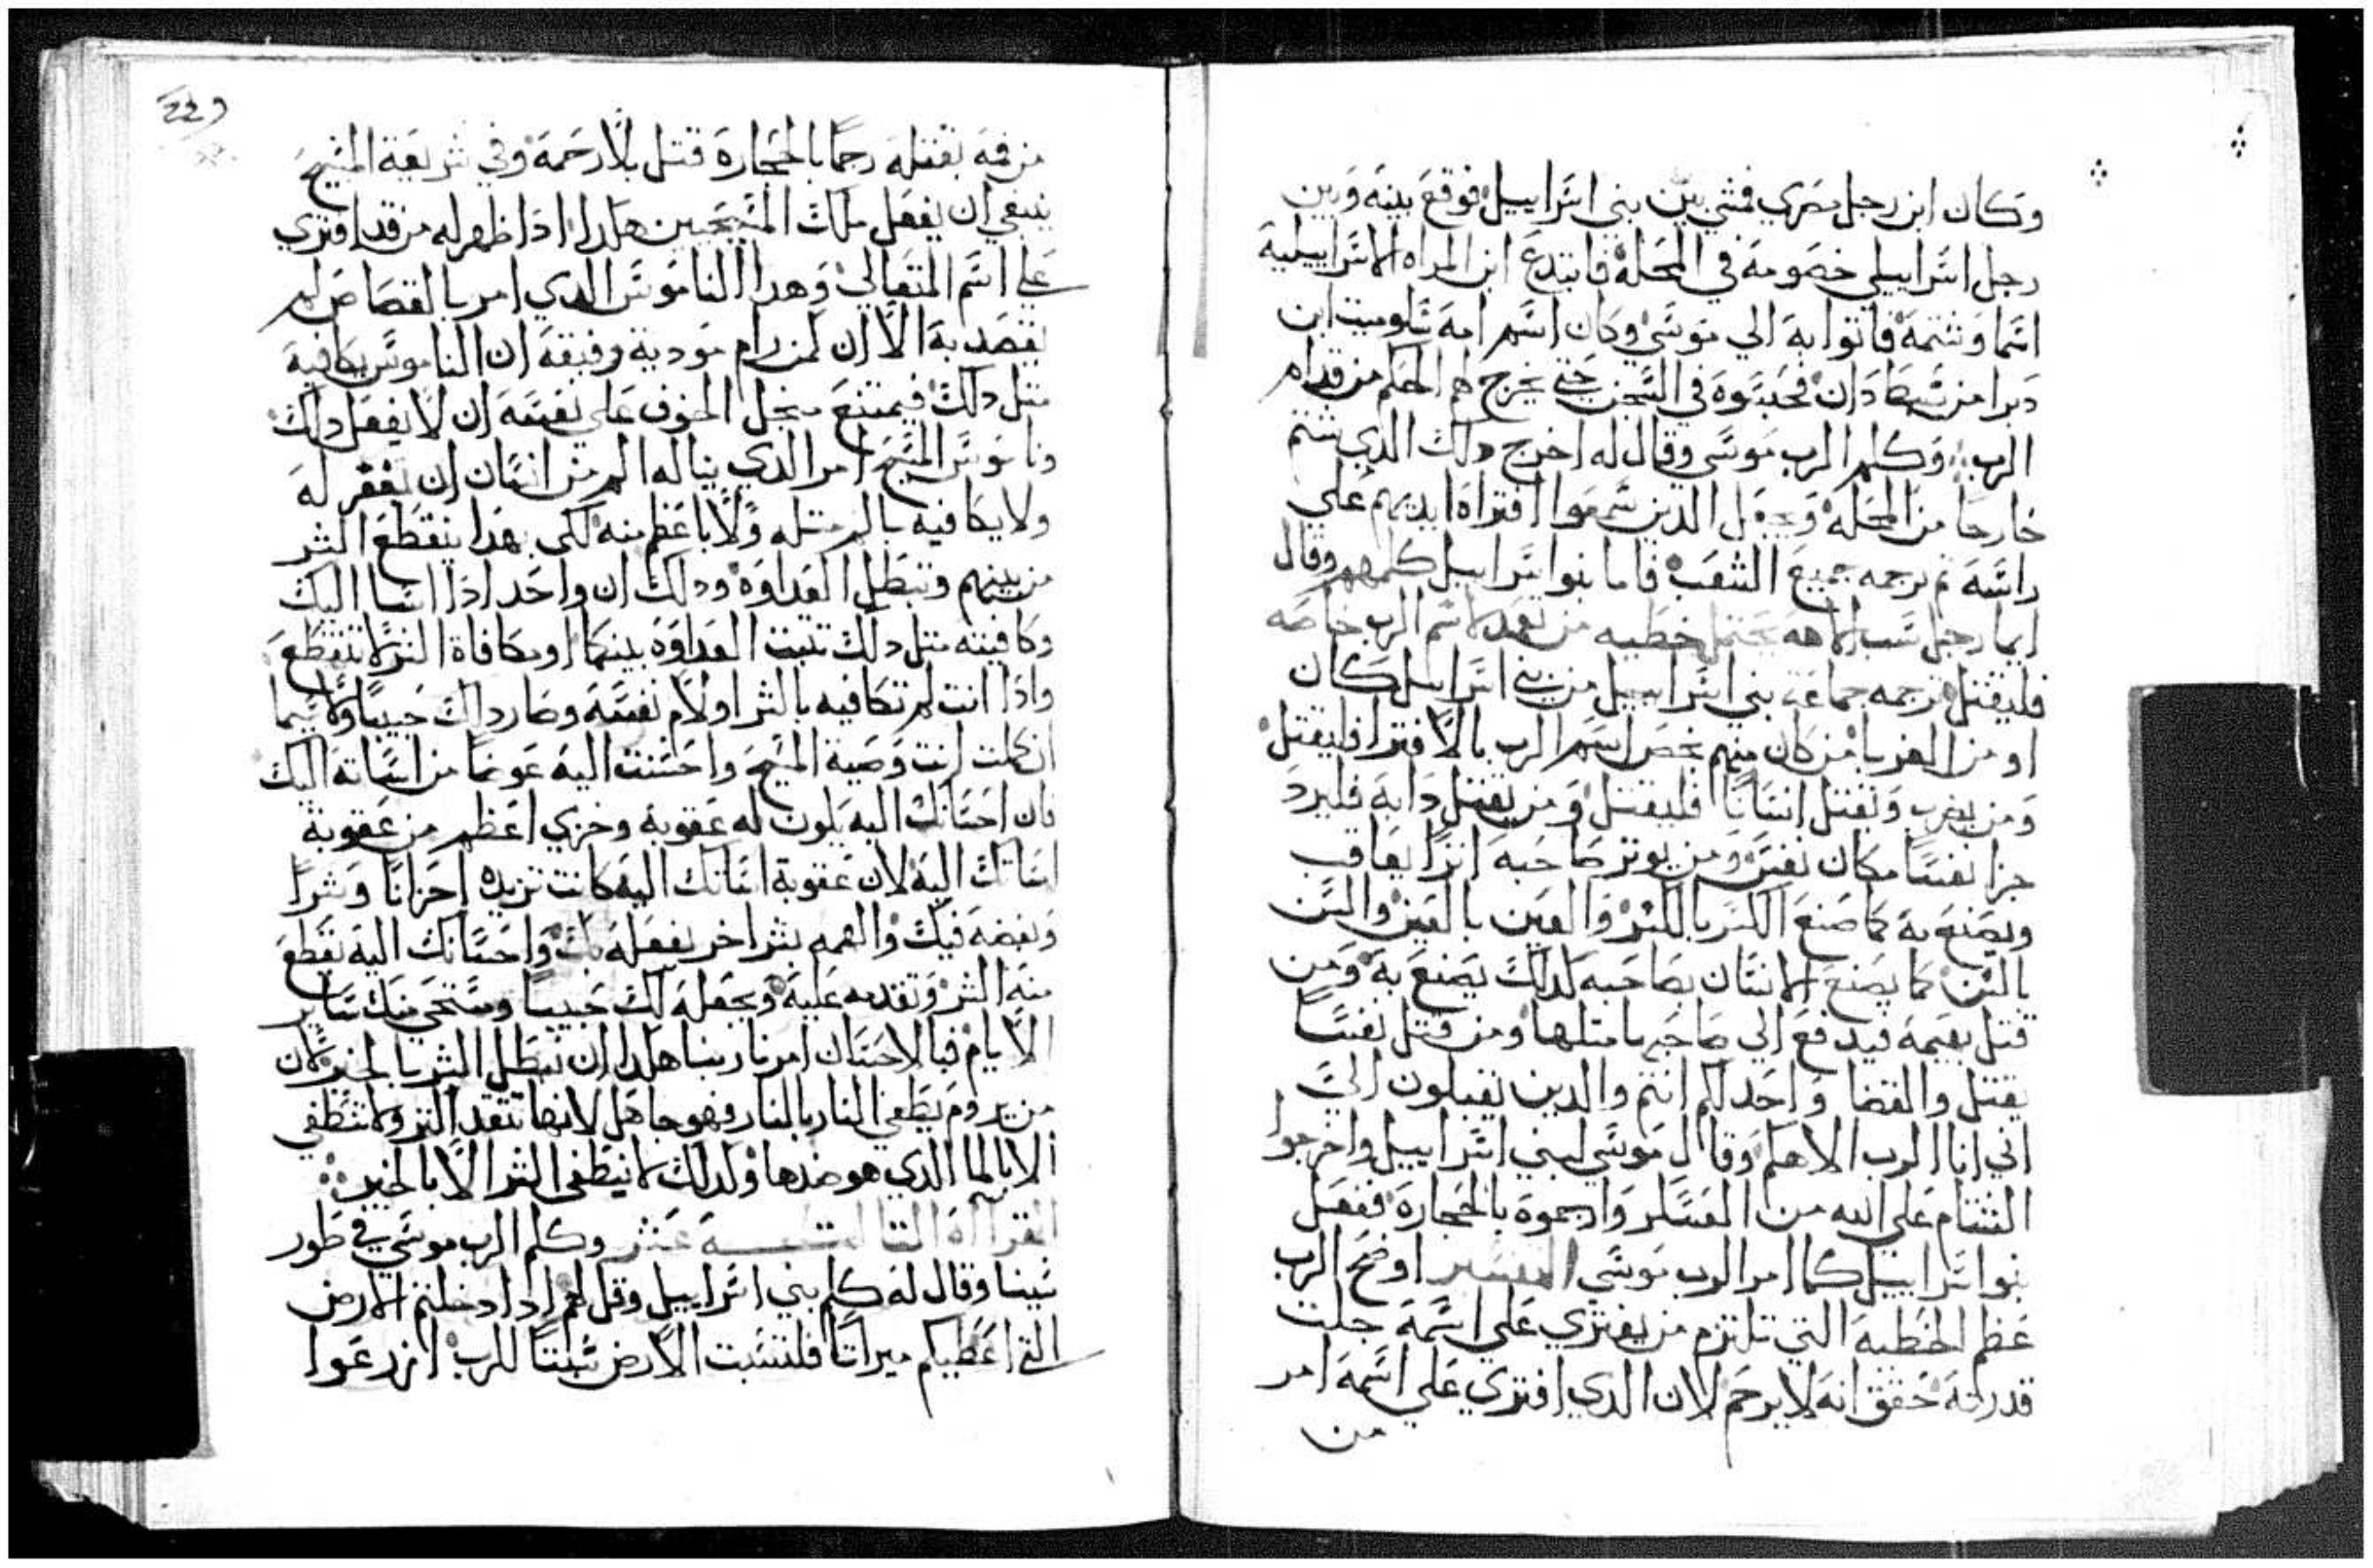 وكان ابن رجل مصري فمشي بين بني اسراييل فوقع بينه وبين
رجل اسراييلي خصومة في المحلة فابتدع ابن المراه الاسراييلية
اسما وشتمه فاتوا به الي موسي وكان اسم امه شلوميت ابن
دبرا من سبط دان فحبسوه في السجن حتي يخرج لهم الحكم من قدام
الرب وكلم الرب موسي وقال له اخرج دلك الدي شتم
خارجا من المحلة ويجعل الدين سمعوا افتراه ايديهم علي
راسه تم يرجمه جميع الشعب فاما بنوا اسراييل كلمهم وقال
ايما رجل سب الاهه يحتمل خطيه من يعد لاسم الرب خاصه
فليقتل ترجمه جماعة بني اسراييل من بني اسراييل كان
او من الغربا من كان منهم يخص اسم الرب بالافترا فليقتل
ومن يضرب ويقتل انسانا فليقتل ومن يقتل دابه فليرد
جزا نفسا مكان نفس ومن يوتر صاحبه اترا يعاقب
ويصنع به كما صنع الكسر بالكسر والعين بالعين والسن
بالسن كما يصنع الانسان بصاحبه كدلك يصنع به ومن
قتل بهيمه فيدفع الي صاحبها متلها ومن قتل نفسا
يقتل والقضا واحد لكم انتم والدين يقبلون الي
اني انا الرب الاهكم وقال موسي لبني اسراييل واخرجوا
الشتام علي الله من العسكر وارجموه بالحجارة ففعل
بنوا اسراييل كما امر الرب موسي المفسر اوضح الرب
عظم الخطيه التي تلتزم من يفتري علي اسمه جلت
قدرته حقق انه لا يرحم لان الدي افتري علي اسمه امر
من
229
من فمه بقتله رجما بالحجارة قتل بلا رحمة وفي شريعة المسيح
ينبغي ان يفعل ملك المسيحيين هكدا ادا ظهر له من قد افتري
علي اسم المتعالي وهدا الناموس الدي امر بالقصاص لم
يقصد به الا ان لمن رام مودية رفيقه ان الناموس يكافيه
متل دلك فيمتنع من اجل الخوف علي نفسه ان لا يفعل داك
وناموس المسيح امر الدي يناله الم من انسان ان يغفر له
ولا يكافيه بالم متله ولا باعظم منه لكي بهدا ينقطع الشر
من بينهم وتبطل العداوه ودلك ان واحد ادا اسا اليك
وكافيته متل دلك تتبت العداوه بينكما ومكافاة الشر لا تنقطع
وادا انت لم تكافيه بالشر اولا م نفسه وصار داك حبيبا ولاسيما
ان كملت انت وصية المسيح واحسنت اليه عوضا من اساته اليك
فان احسانك اليه يكون له عقوبة وخزي اعظم من عقوبة
اساتك اليه لان عقوبة اساتك اليه كانت تزيده احزانا وشرا
وبغضه فيك والهمه بشر اخر يفعله بك واحسانك اليه يقطع
منه الشر وتقدمه عليه ويجعله لك حبيبا ومستحي منك ساير
الايام فبالاحسان امرنا ربنا هكدا ان نبطل الشر بالخير لان
من يروم يطفي النار بالنار فهو جاهل لانها تتقد اكتر ولا تنطفي
الا بالما الدي هو ضدها ولدلك لا ينطفي الشر الا بالخير
القراة التالتة عشر وكلم الرب موسي في طور
سينا وقال له كلم بني اسراييل وقل لهم ادا دخلتم الارض
التي اعطيكم ميراتا فلتسبت الارض سبتا للرب ازرعوا